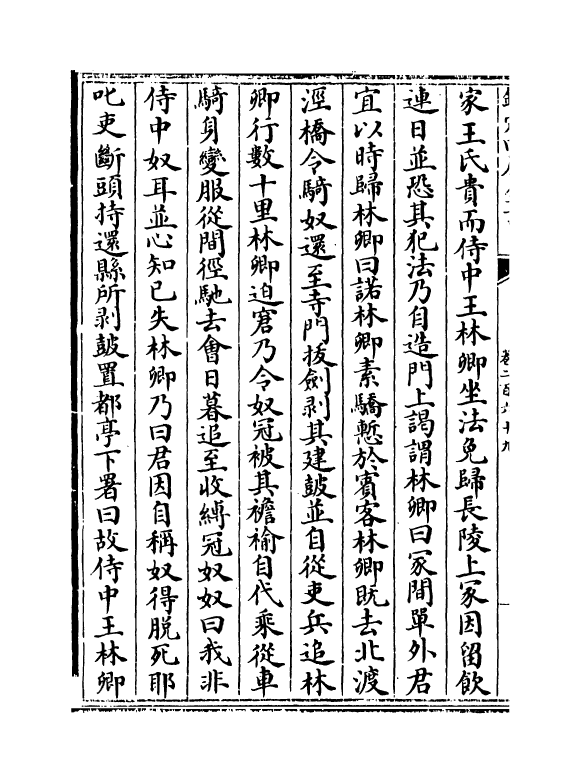 卷二百六十九
家王氏貴而侍中王林卿坐法免歸長陵上冢因留飲
連日並恐其犯法乃自造門上謁謂林卿曰冢間單外君
宜以時歸林卿曰諾林卿素驕慙於賓客林卿既去北渡
涇橋令騎奴還至寺門拔劍剥其建鼓並自從吏兵追林
卿行數十里林卿迫窘乃令奴冠被其襜褕自代乘從車
騎身變服從間徑馳去會日暮追至收縛冠奴奴曰我非
侍中奴耳並心知已失林卿乃曰君因自稱奴得脱死耶
叱吏斷頭持還縣所剥鼓置都亭下署曰故侍中王林卿